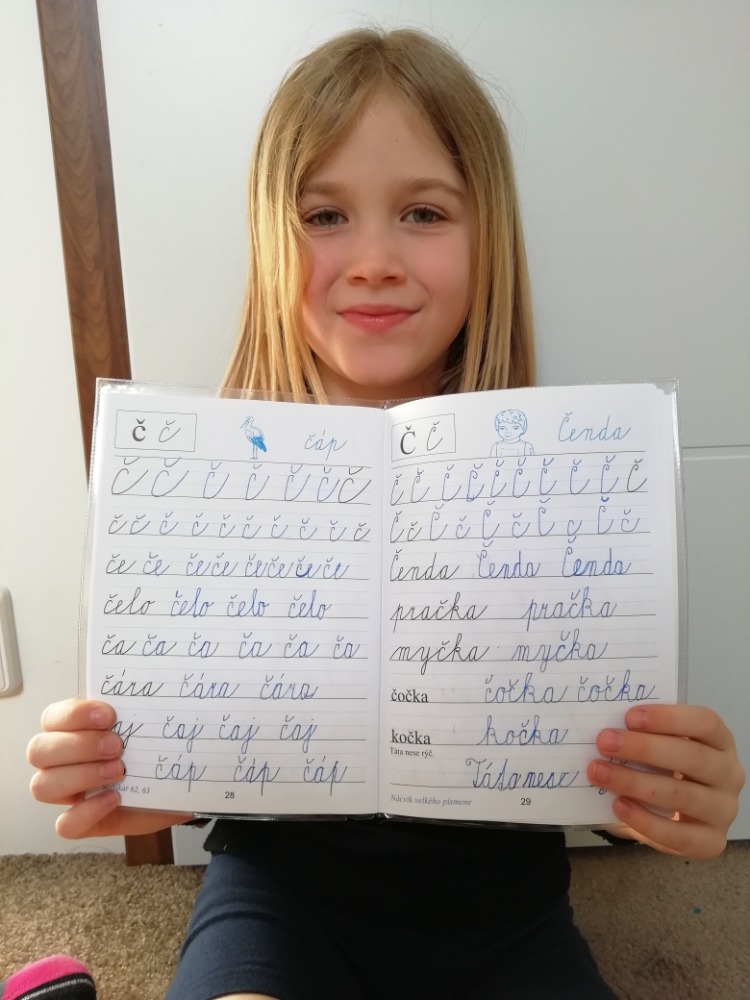 č č čáp
č č č č č č č
č č č č č č č č č č
če če čeče čečečeče
čelo čelo čelo čelo
ča ča ča ča ča ča
čára čára čára
aj čaj čaj čaj
čáp čáp čáp
62, 63 28
Č Č Čenda
Č Č Č Č Č Č Č Č Č Č
Č č Č č Č č Č č Č č
Čenda Čenda Čenda
pračka pračka
myčka myčka
čočka čočka čočka
kočka kočka
Táta nese rýč.
Táta nese
Nácvik velkého písmene 29